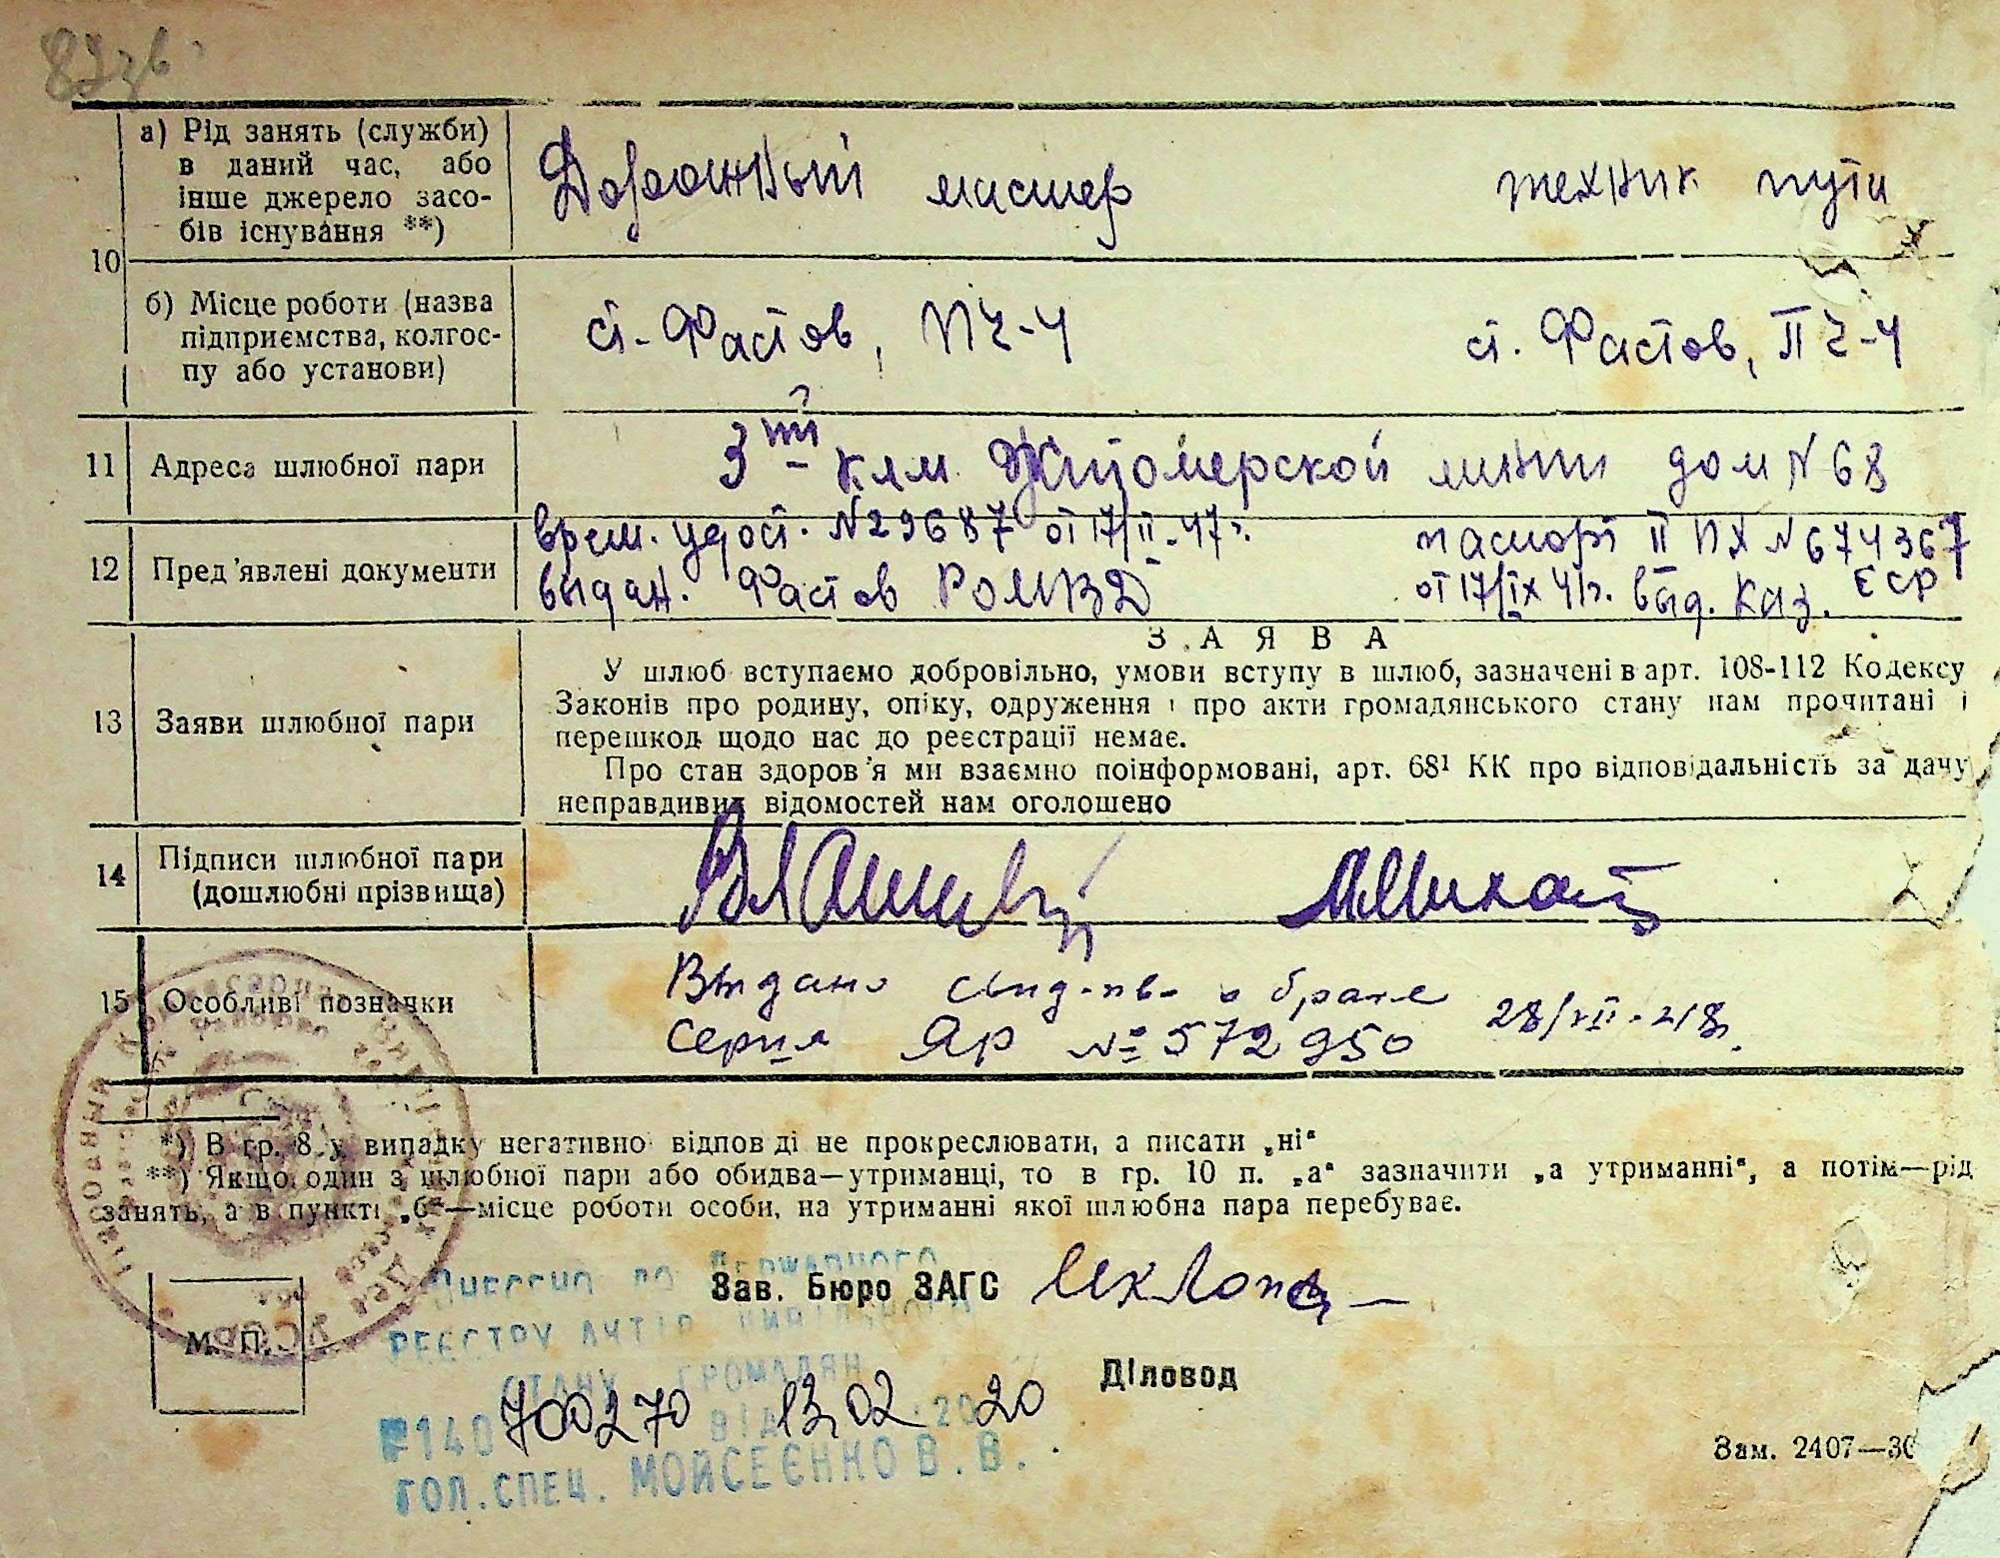 87зв
а) Рід занять (служби)
в даний час, або
інше джерело засо-
бів існування **)
Дорожный мастер
техник пути
10
б) Місце роботи (назва
підприємства, колгос-
пу або установи)
ст. Фастов, ПЧ-4
ст. Фастов, ПЧ-4
11 Адреса шлюбної пари
3тй клм. Житомерской линии дом №68
12 Пред'явлені документи
врем. удост. №29687 от 17/II-47г.
выдан. Фастов РОМВД
паспорт II ПХ №674367
от 17/IX 41г. выд. Каз. ССР
13 Заяви шлюбної пари
ЗАЯВА
У шлюб вступаємо добровільно, умови вступу в шлюб, зазначені в арт. 108-112 Кодексу
Законів про родину, опіку, одруження і про акти громадянського стану нам прочитані і
перешкод щодо нас до реєстрації немає.
Про стан здоров'я ми взаємно поінформовані, арт. 68¹ КК про відповідальність за дачу
неправдивих відомостей нам оголошено
14 Підписи шлюбної пари
(дошлюбні прізвища)
15 Особливі позначки
Выдано свид-во о браке
Серия ЯР №572950 28/VII-48г.
*) В гр. 8 у випадку негативно відпов ді не прокреслювати, а писати „ні“
**) Якщо один з шлюбної пари або обидва—утриманці, то в гр. 10 п. „а“ зазначити „а утриманні“, а потім—рід
занять, а в пункті „б“—місце роботи особи, на утриманні якої шлюбна пара перебуває.
Зав. Бюро ЗАГС
М. П.
Внесено до Державного
РЕЄСТРУ АКТІВ ЦИВІЛЬНОГО
СТАНУ ГРОМАДЯН
Діловод
№140 700270 ВІД 13.02 2020
ГОЛ.СПЕЦ. МОЙСЕЄНКО В.В.
Зам. 2407—30